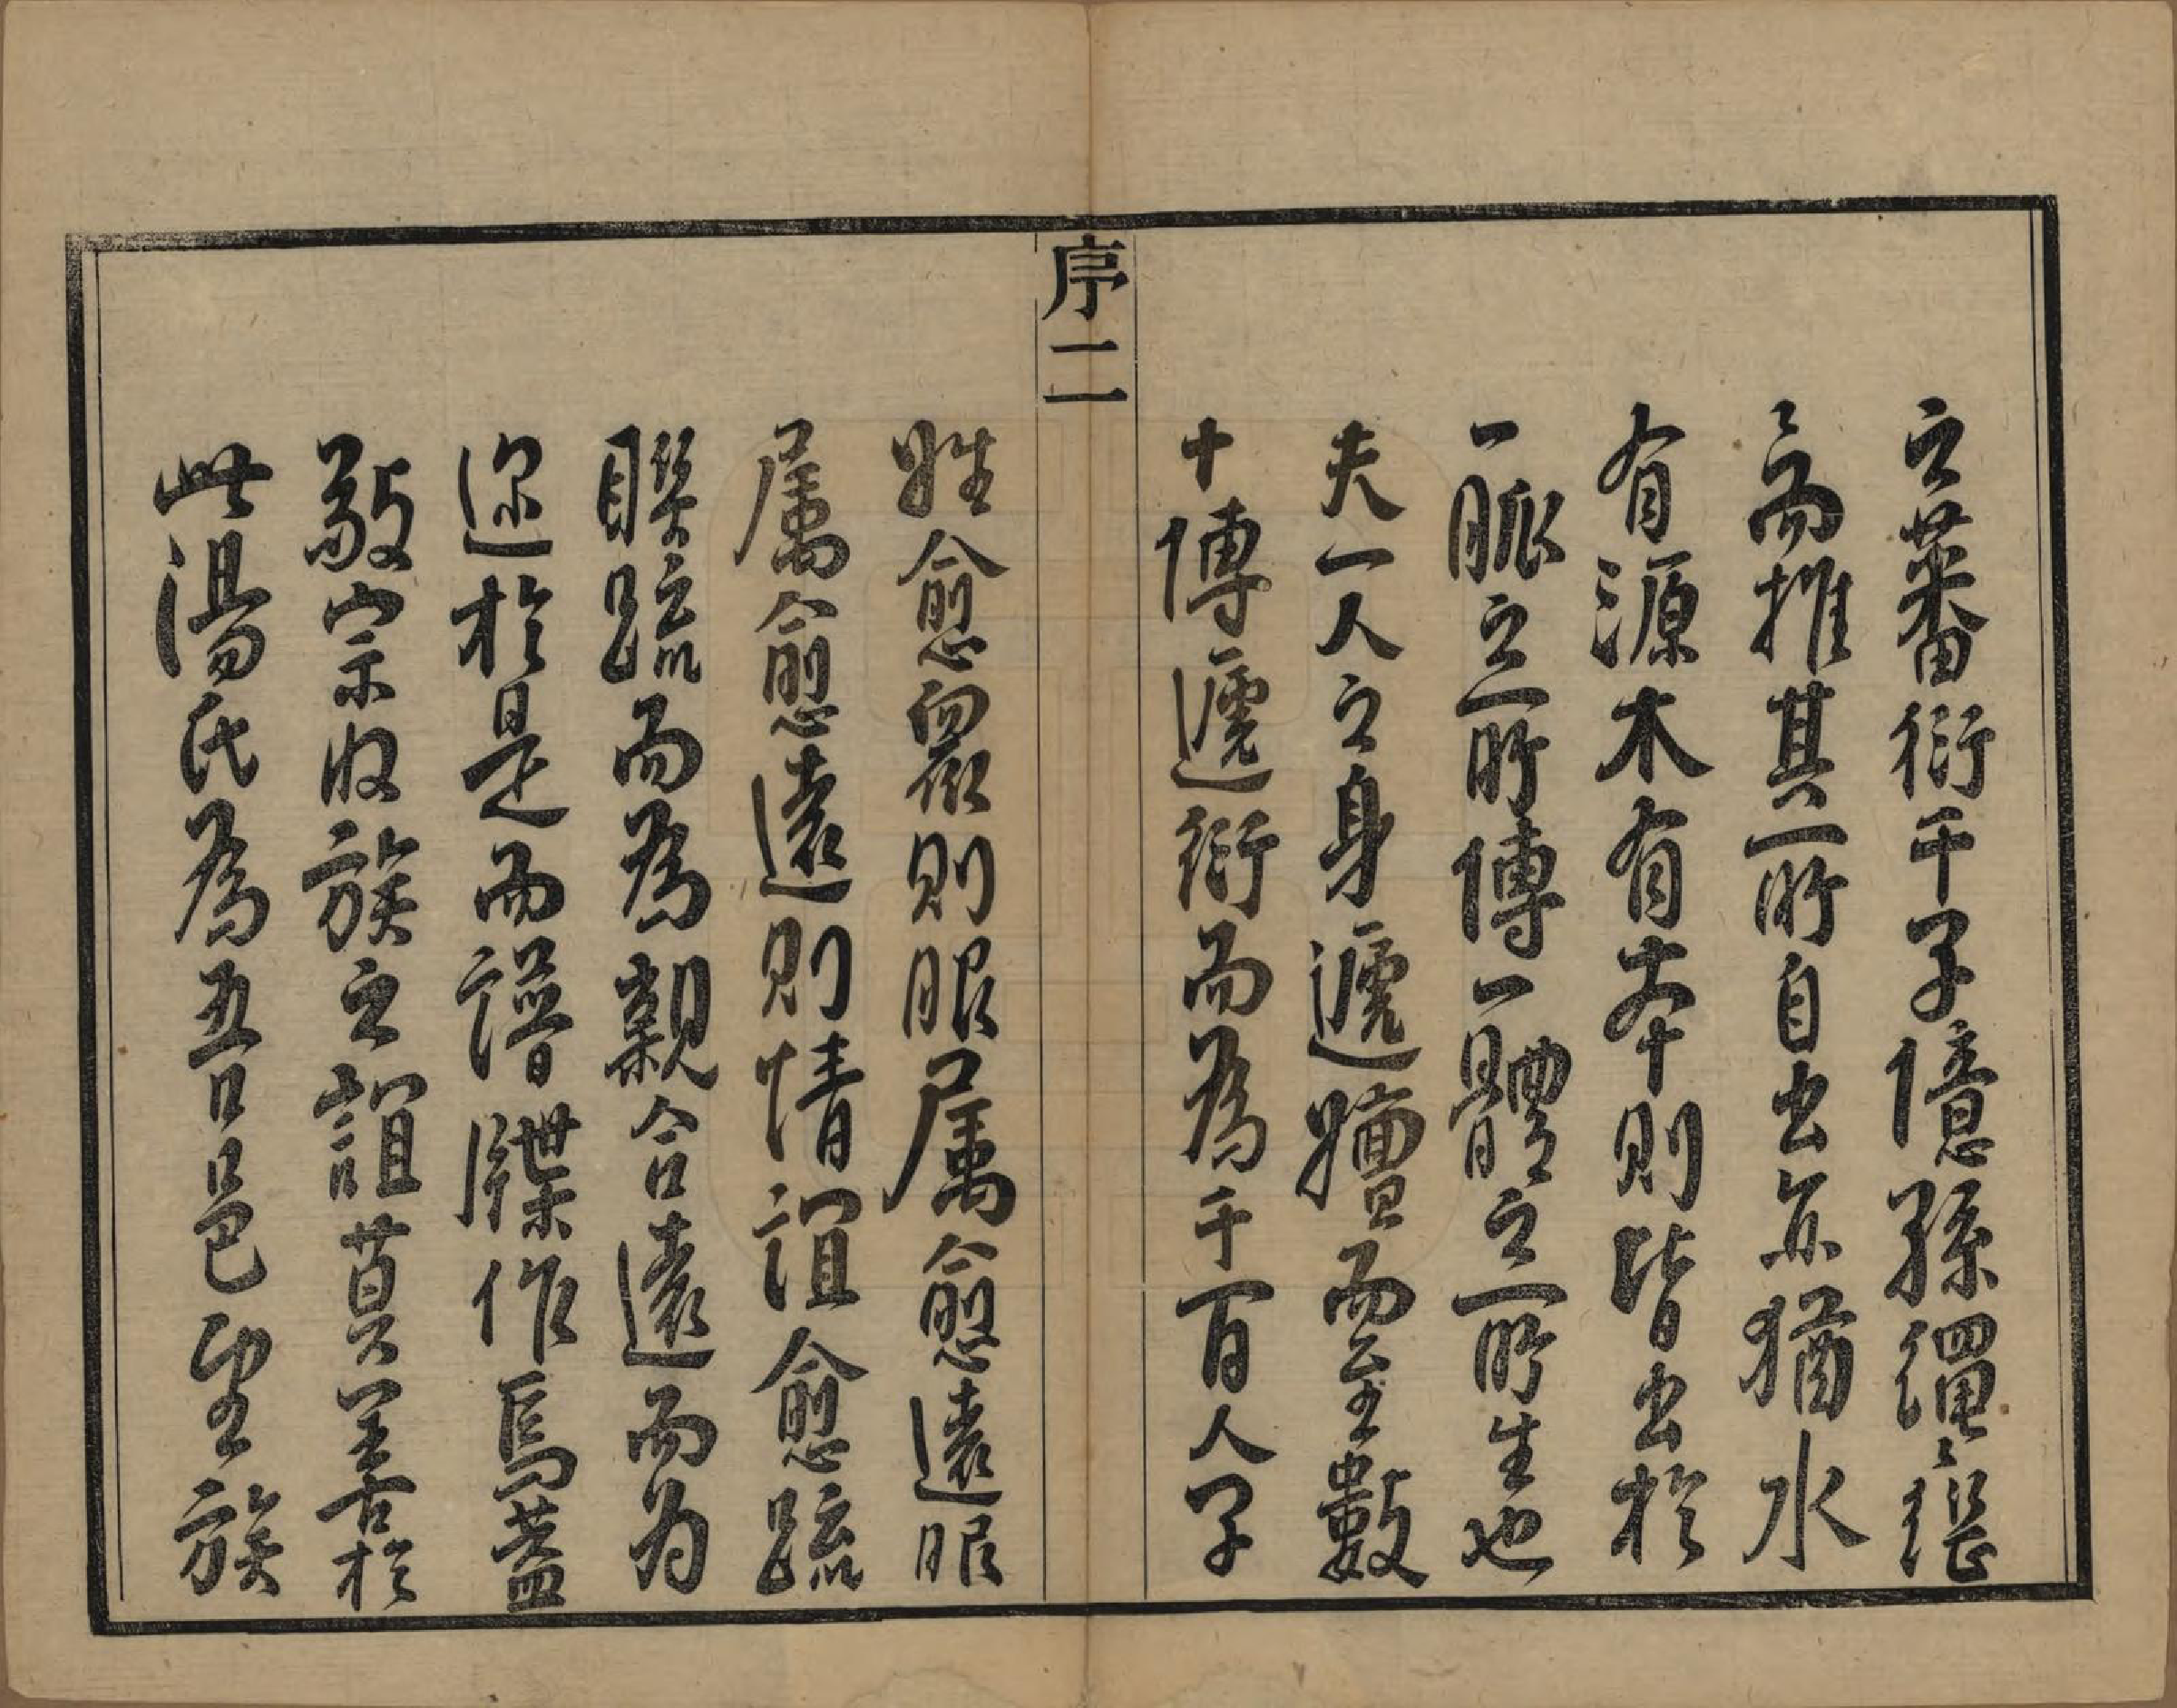 之蕃衍千子億孫繩〻繼
〻而推其所自出亦猶水
有源木有本則皆出於
一脈之所傳一體之所生也
夫一人之身遞嬗而至數
十傳遞衍而為千百人子
序二
姓愈眾則服属愈遠服
属愈遠則情誼愈疏
聯疏而為親合遠而为
迩於是而譜牒作焉蓋
敬宗收族之誼莫善於
此湯氏為吾邑望族